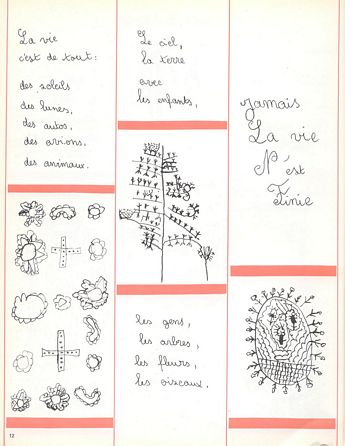 La vie
c'est de tout:
des soleils
des lunes,
des autos,
des avions,
des animaux.
Le ciel,
la terre
avec
les enfants,
les gens,
les arbres,
les fleurs,
les oiseaux.
jamais
La vie
N'est
Finie
12